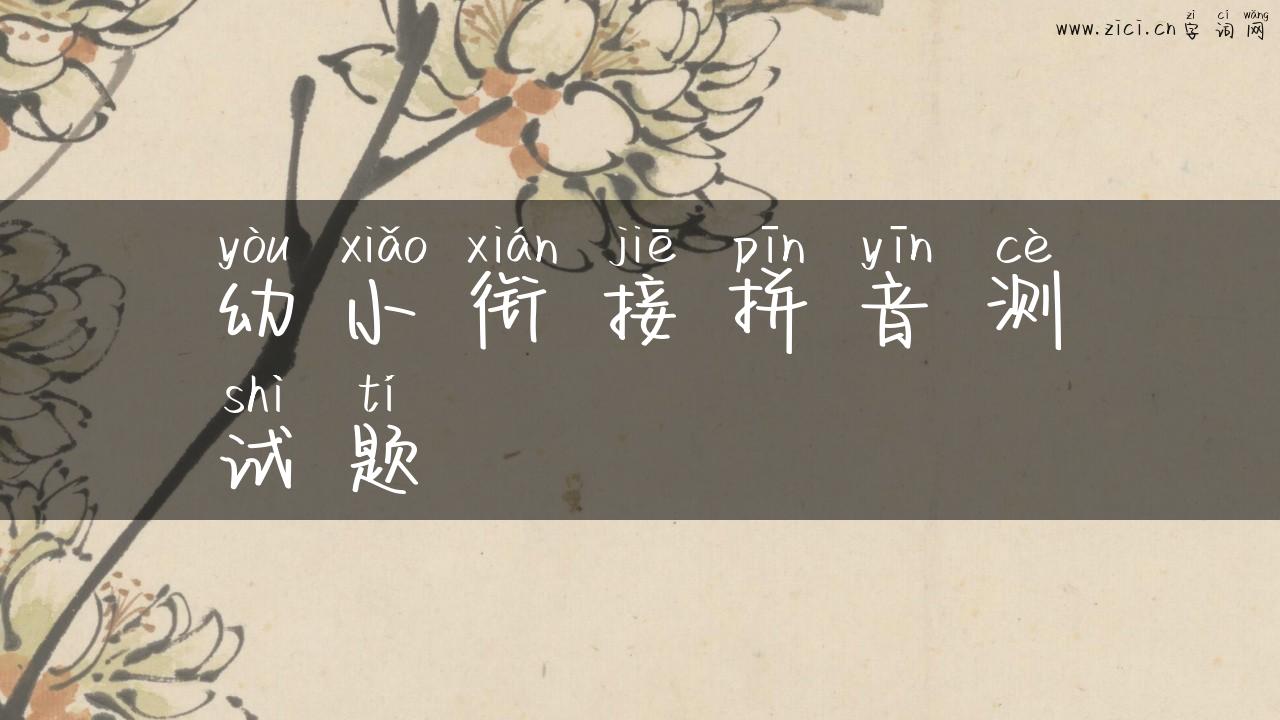 zì cí wǎng
www.zici.cn 字 词 网
yòu xiǎo xián jiē pīn yīn cè
幼 小 衔 接 拼 音 测
shì tí
试 题